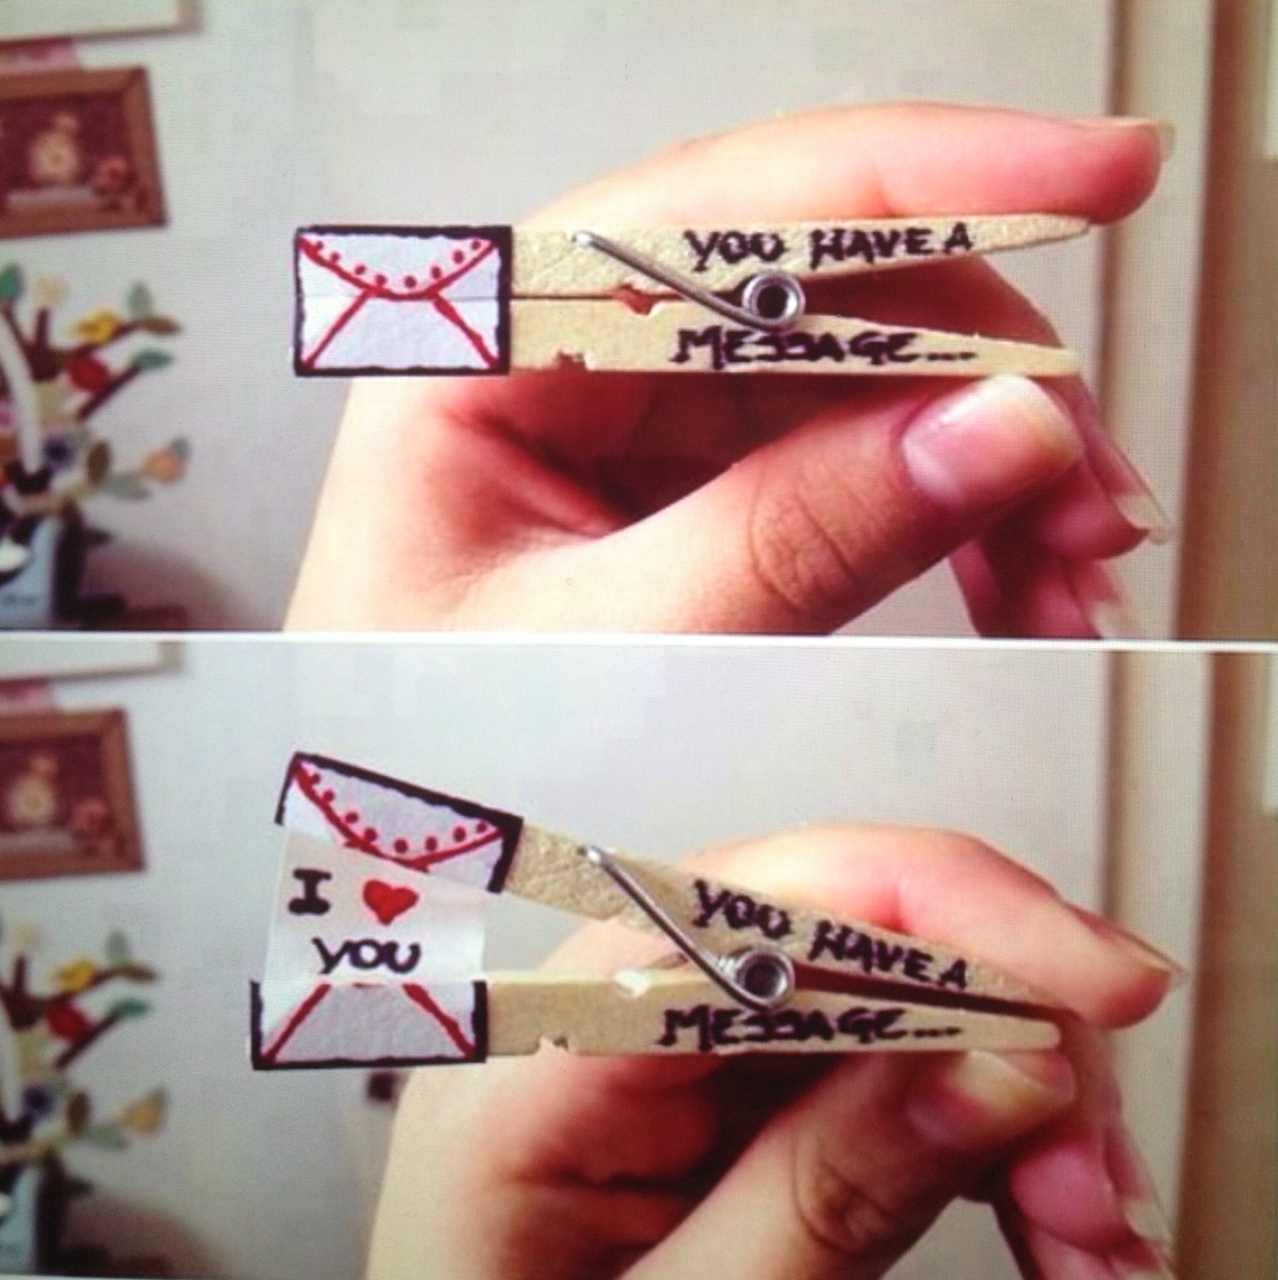 YOU HAVE A
MESSAGE...
I ❤
YOU
YOU HAVE A
MESSAGE...